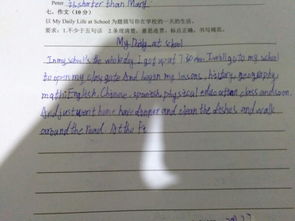 Peter is shorter than Mary.
七、作文（10分）
以 My Daily Life at School 为题描写你在学校的一天的生活。
要求：1.不少于五句话 2.条理清楚，意思连贯，标点正确，书写规范。
My Daily at school
In my school's the whole day, I got up at 7:30 am. I will go to my school
to open my class gate And began my lessons, history, geography,
math, English, Chinese, spanish, physical education class and soon.
And just went home have danper and clean the dishes and walk
around the road. At the